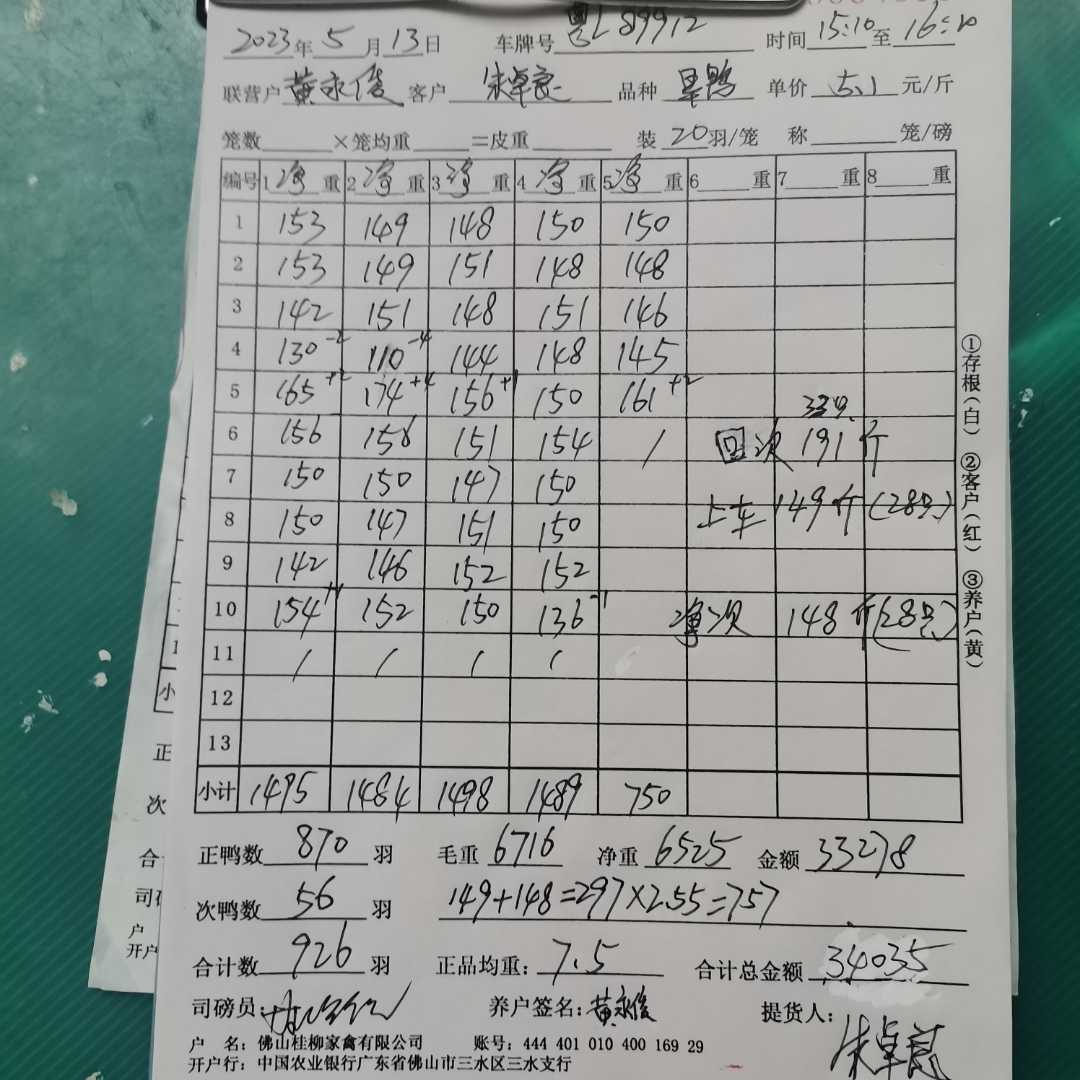 2023年5月13日 车牌号 粤L89912 时间15:10至16:20
联营户 黄永俊 客户 朱卓良 品种 单价 5.1 元/斤
笼数 ×笼均重 =皮重 装 20 羽/笼 称 笼/磅
编号 1 净 重 2 净 重 3 净 重 4 净 重 5 净 重 6 重 7 重 8 重
1 153 149 148 150 150
2 153 149 151 148 148
3 142 151 148 151 146
4 130-2 110-4 144 148 145
5 165+2 174+4 156+1 150 161+2
33只
6 156 156 151 154 / 回次 191斤
7 150 150 147 150
8 150 147 151 150 上车 149斤(28只)
9 142 146 152 152
10 154+1 152 150 136-1 净次 148斤(28只)
11 / / / /
12
13
小计 1495 1484 1498 1489 750
正鸭数 870 羽 毛重 6716 净重 6525 金额 33278
次鸭数 56 羽 149+148=297×2.55=757
合计数 926 羽 正品均重: 7.5 合计总金额 34035
司磅员: 养户签名: 黄永俊 提货人: 朱卓良
户 名: 佛山桂柳家禽有限公司 账号: 444 401 010 400 169 29
开户行: 中国农业银行广东省佛山市三水区三水支行
①存根(白) ②客户(红) ③养户(黄)
1
小
正
次
合
司
户
开户